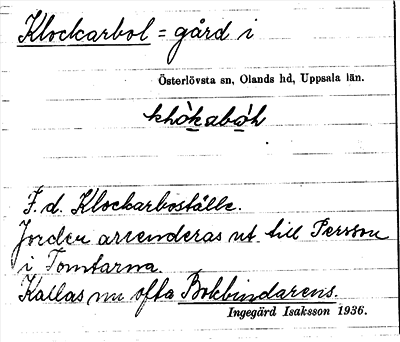 Klockarbol = gård i
Österlövsta sn, Olands hd, Uppsala län.
khòkabòh
F.d. Klockarboställe.
Jorden arrenderas ut till Persson
i Tomtarna.
Kallas nu ofta Bokbindarens.
Ingegärd Isaksson 1936.